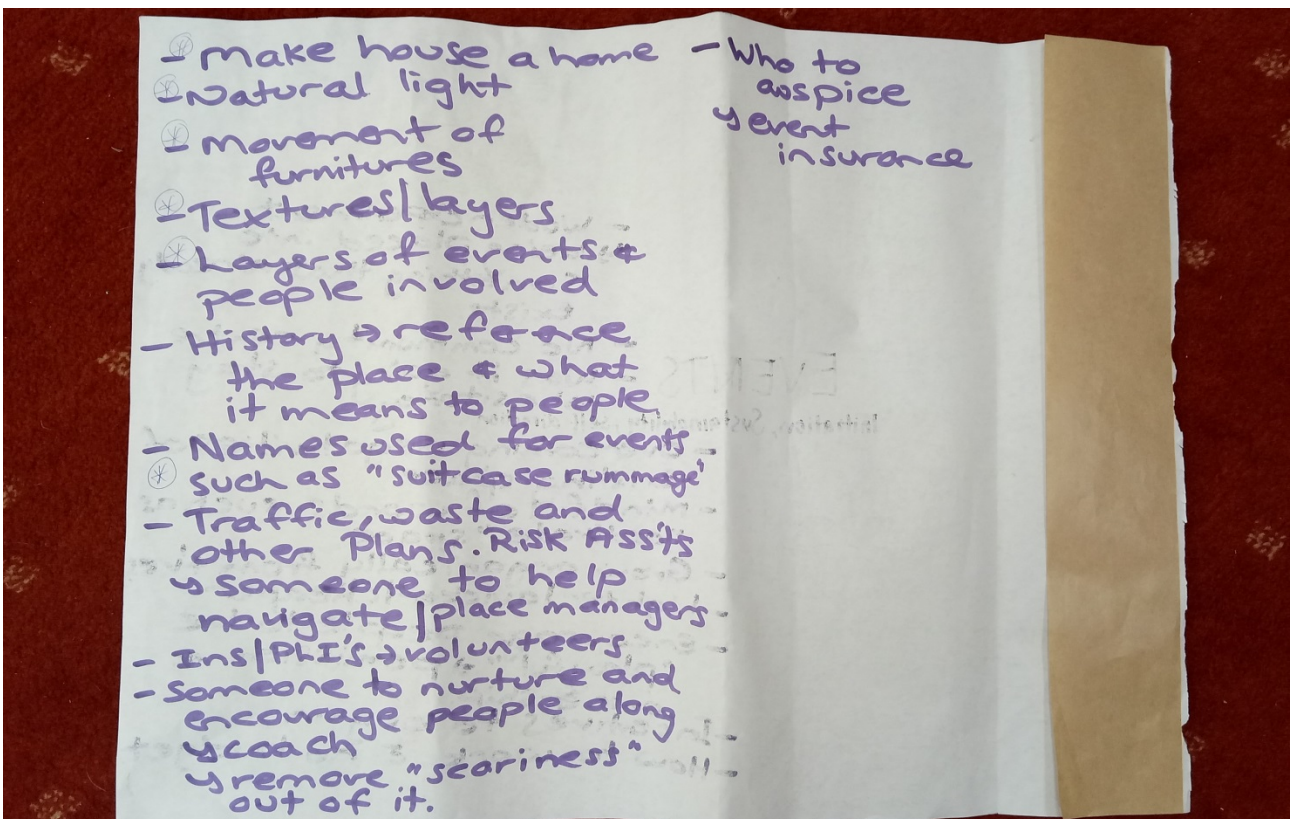 - make house a home
- Natural light
- movement of
furnitures
- Textures/layers
- Layers of events &
people involved
- History → reference
the place & what
it means to people
- Names used for events
such as "suitcase rummage"
- Traffic, waste and
other Plans. Risk Ass'ts
↳ someone to help
navigate/place managers
- Ins/PLI's → volunteers
- someone to nurture and
encourage people along
↳ coach
↳ remove "scariness"
out of it.
- Who to
auspice
↳ event
insurance
EVENTS